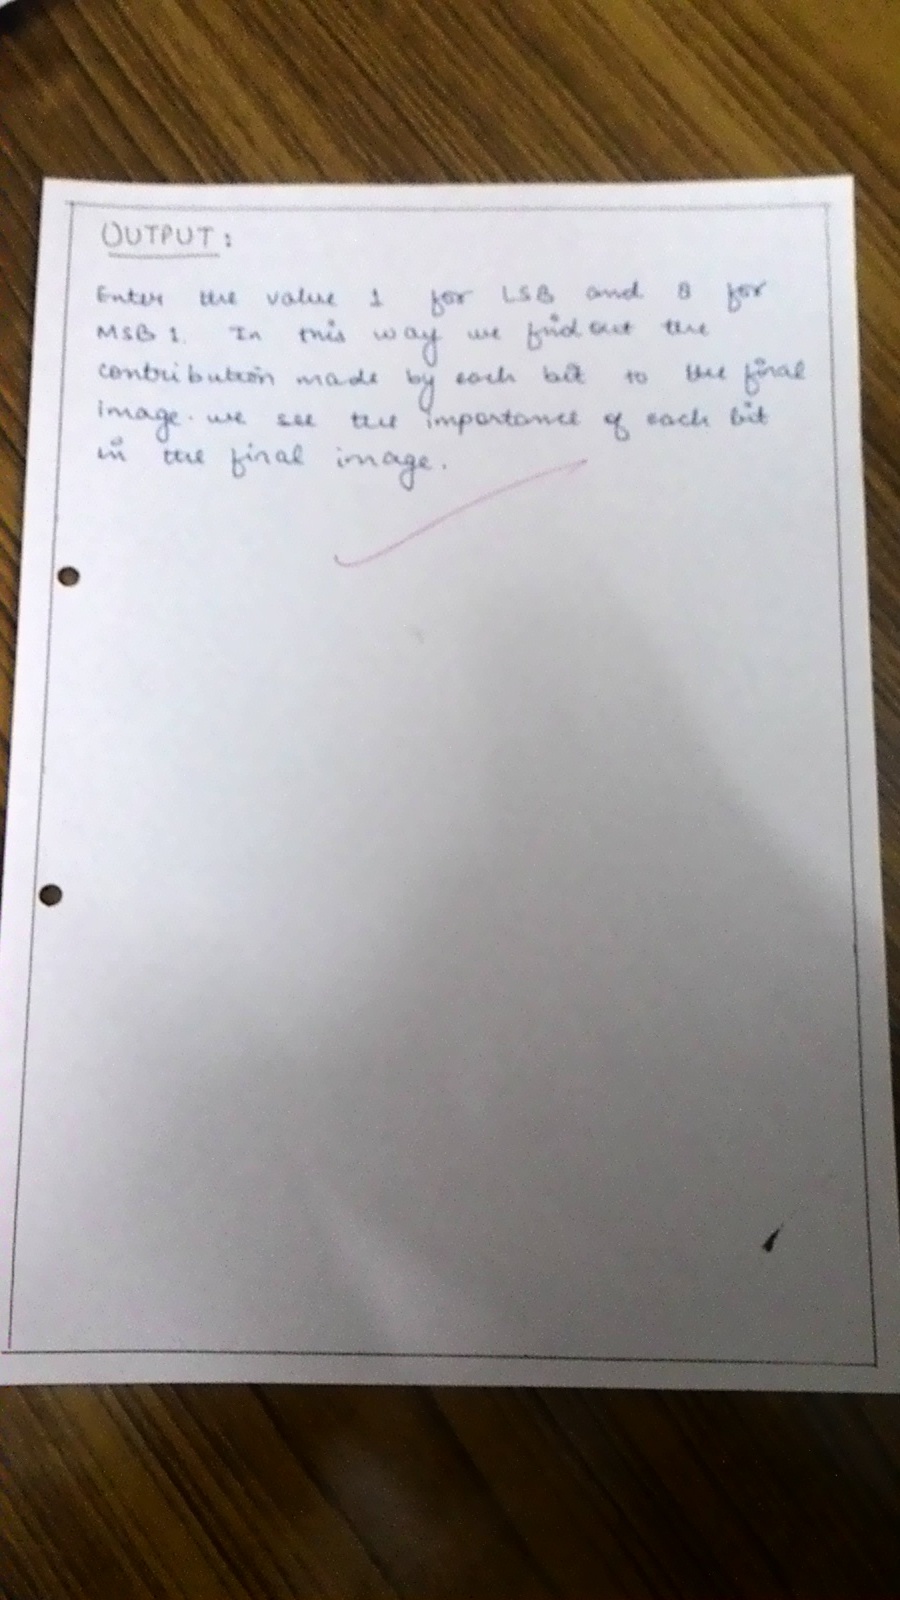 OUTPUT:
Enter the value 1 for LSB and 8 for
MSB 1. In this way we find out the
contribution made by each bit to the final
image. we see the importance of each bit
in the final image.